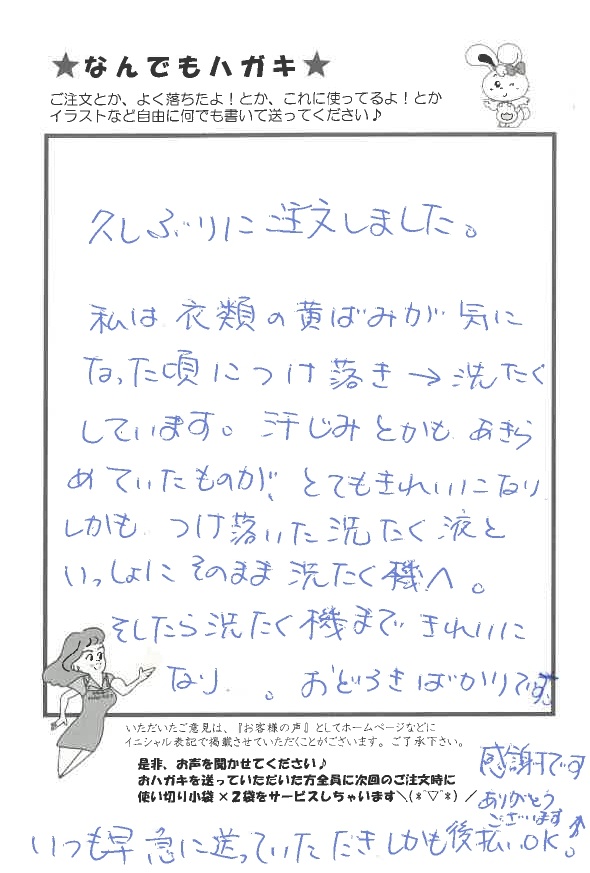 ★なんでもハガキ★
ご注文とか、よく落ちたよ！とか、これに使ってるよ！とか
イラストなど自由に何でも書いて送ってください♪
久しぶりに注文しました。
私は衣類の黄ばみが気に
なった頃につけ落き→洗たく
しています。汗じみとかも あきら
めていたものが、とてもきれいになり
しかも つけ落いた洗たく液と
いっしょに そのまま洗たく機へ。
そしたら洗たく機まで きれいに
なり 。おどろきばかりです。
いただいたご意見は、『お客様の声』としてホームページなどに
イニシャル表記で掲載させていただくことがございます。ご了承下さい。
是非、お声を聞かせてください♪
おハガキを送っていただいた方全員に次回のご注文時に
使い切り小袋×2袋をサービスしちゃいます＼(*ˆ▽ˆ*)／
いつも早急に送っていただきしかも後払いOK。
感謝です
ありがとう
ございます